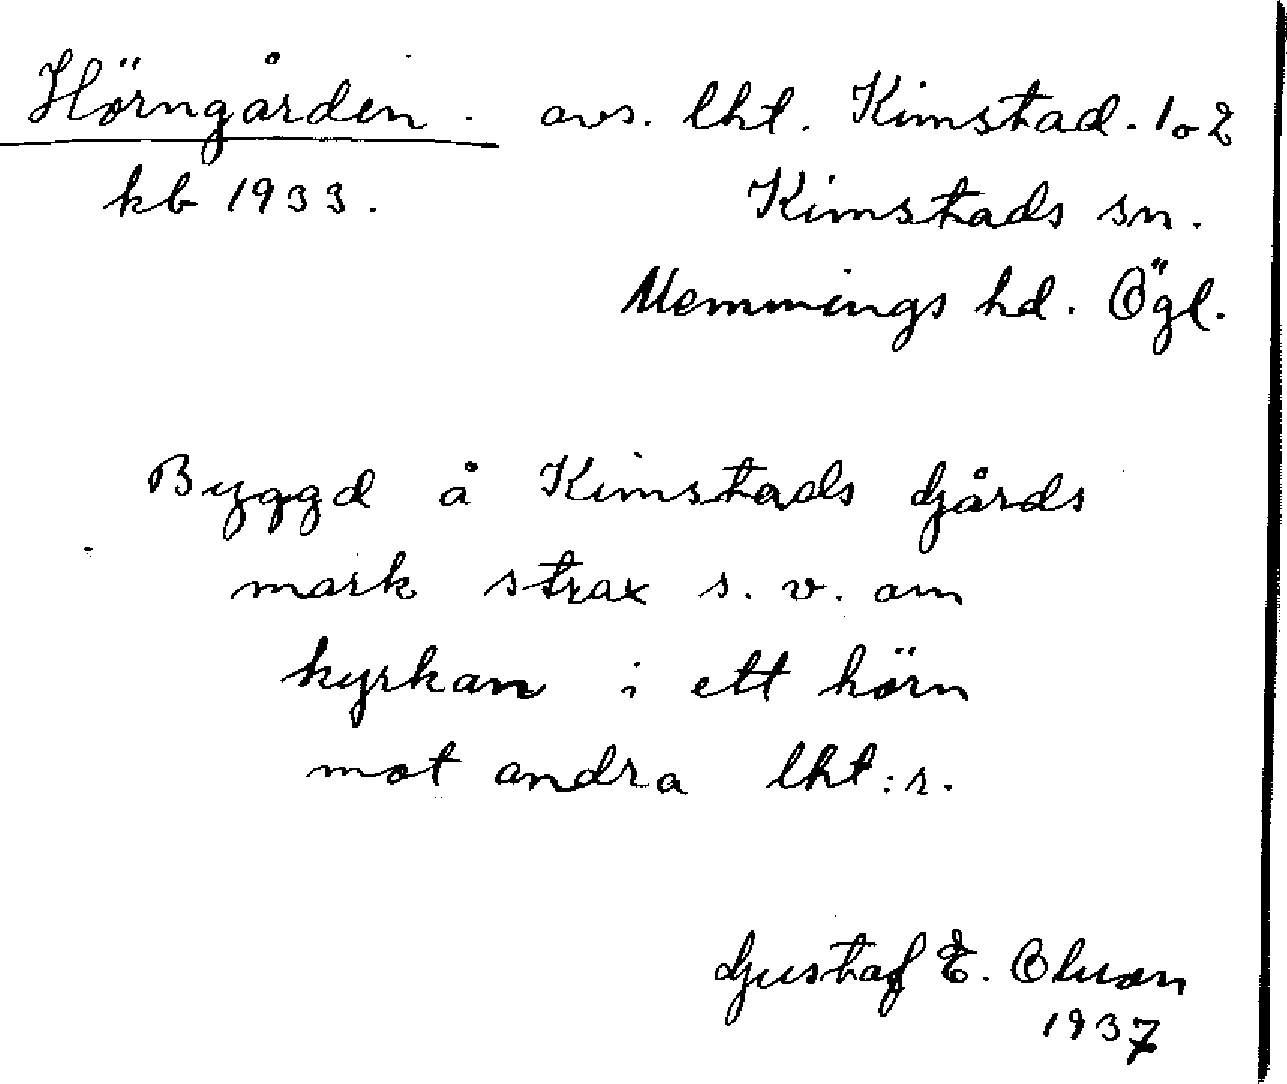 Hörngården. avs. lht. Kimstad. 1 o 2
kb 1933. Kimstads sn.
Memmings hd. Ögl.
Byggd å Kimstads Gårds
mark strax s. v. om
kyrkan i ett hörn
mot andra lht:r.
Gustaf E.
1937